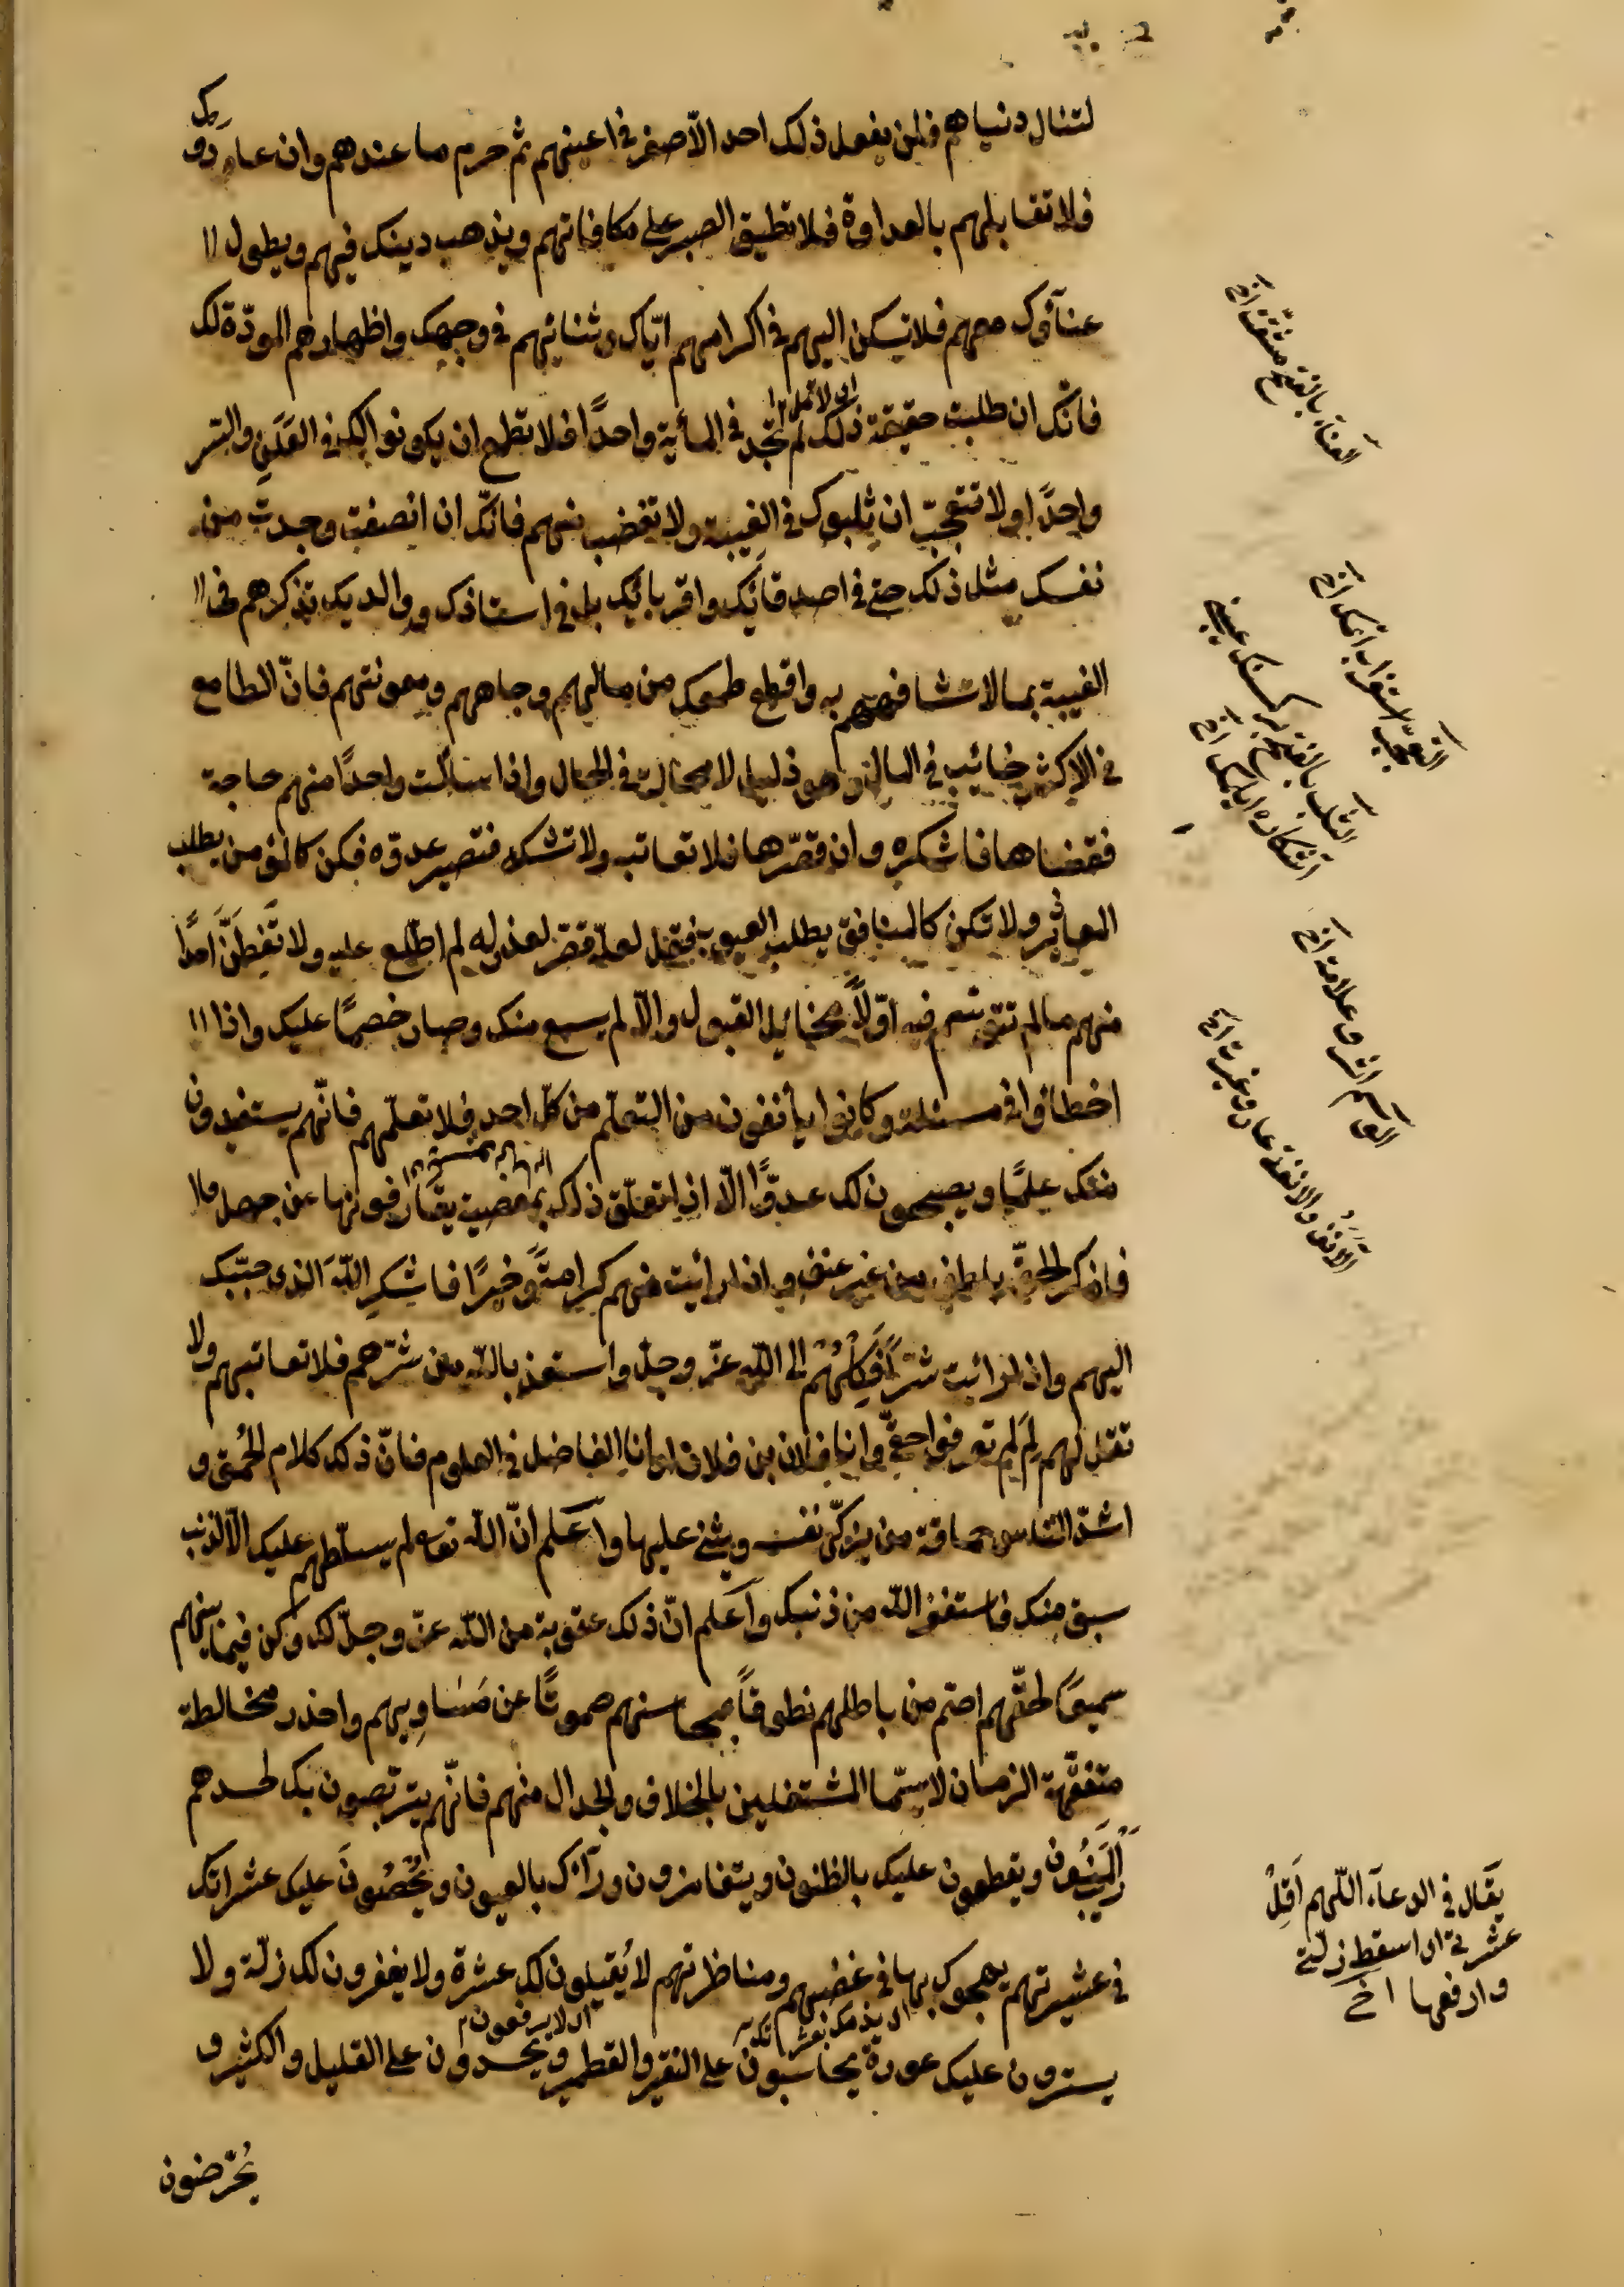 لتنال دنياهم فلن يفعل ذلك احد الّا صغر في اعينهم ثم حرم ما عندهم وان عادوك
فلا تقابلهم بالعداوة فلا تطيق الصبر على مكافاتهم ويذهب دينك فيهم ويطول
عناؤك معهم فلا تسكن اليهم في اكرامهم ايّاك وثنائهم في وجهك واظهارهم المودّة لك
فانّك ان طلبت حقيقة ذلك لم تجد في المأية واحدًا فلا تطمع ان يكونوا لك في العَلَنِ والسّر
واحدًا ولا تتعجّب ان ثلبوك في الغيبة ولا تغضب منهم فانّك ان انصفت وجدت من
نفسك مثل ذلك حتى في اصدقائك واقربائك بل في استاذك ووالديك تذكرهم في
الغيبة بما لا تشافههم به واقطع طمعك من مالهم وجاههم ومعونتهم فانّ الطامع
في الاكثر خائب في المال وهو ذليل لا محالة في الحال واذا سألت واحدًا منهم حاجة
فقضاها فاشكره وان قصّرها فلا تعاتب ولا تشك فتصير عدوّه فكن كالمؤمن يطلب
المعاذير ولا تكن كالمنافق يطلب العيوب فقل لعلّه قصّر لعذر له لم اطّلع عليه ولا تَعِظَنَّ احدًا
منهم ما لم تتوسّم فيه اوّلًا مخايل القبول والّا لم يسمع منك وصار خصمًا عليك واذا
اخطأوا في مسئلة وكانوا يأنفون من التعلّم من كلّ احد فلا تعلّمهم فانّهم يستفيدون
منك علمًا ويصبحون لك عدوًّا الّا اذا تعلّق ذلك بمعصية يقارفونها عن جهل
فاذكر الحقّ بلطف من غير عنف واذا رأيت منهم كرامةً وخيرًا فاشكر اللّهَ الذى حبّبك
اليهم واذا رأيت شرًّا فَكِلْهُمْ الى اللّه عزّ وجلّ واستعذ باللّه من شرّهم فلا تعاتبهم ولا
تقل لهم لِمَ لم تعرفوا حقّى وانا فلان بن فلان او انا الفاضل في العلوم فانّ ذلك كلام الحُمقى و
اشدّ النّاس حماقة من يزكّى نفسه ويثنى عليها واَعلم انّ اللّه تعالى لم يسلّطهم عليك الّا لذنب
سبق منك فاستغفر اللّه من ذنبك واَعلم انّ ذلك عقوبة من اللّه عزّ وجلّ لك وكن فيما بينهم
سميعًا لحقّهم اصمّ من باطلهم نطوقًا بمحاسنهم صموتًا عن مَسَاوِيهم واحذر مخالطة
متفقّهة الزمان لا سيّما المشتغلين بالخلاف والجدال منهم فانّهم يتربّصون بك لحسدهم
رَيْبَ الْمَنُونِ ويقطعون عليك بالظنون ويتغامزون ورآءك بالعيون ويُحْصُونَ عليك عثراتك
في عشيرتهم يهجوك بها في غضبهم ومناظرتهم لا يُقيلون لك عثرة ولا يغفرون لك زلّة ولا
يسترون عليك عورة يحاسبون على النقير والقطمير ويحسدون على القليل والكثير و
يُحرّضون
العناء بالفتح مشقت اخ
التعجّب استغراب اتمك اخ
الثلب بالفتح بر كسنك عيبنى
آشكاره ايلمك اخ
التوسّم اثر وعلامة اخ
الاَنَفُ والانفة عار وغيرت اخ
يقال في الدعاء اللّهم اَقِلْ
عثرتى اى اسقط زلّتى
وارفعها اخ
اى لا يرفعون